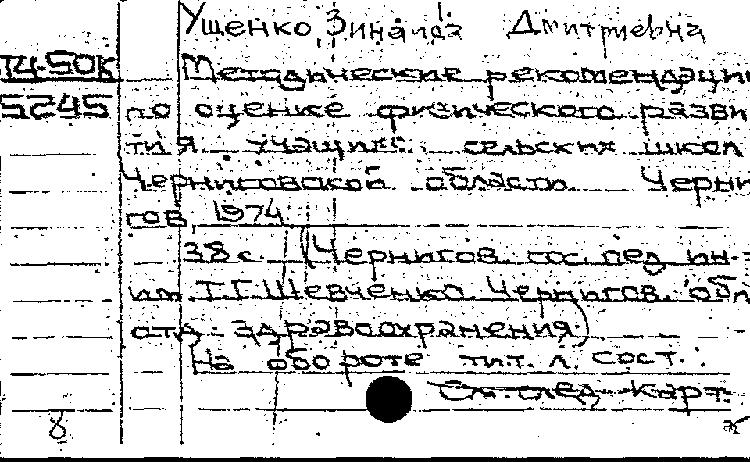 Ущенко, Зинаида Дмитриевна
Т4-50К
5245
Методические рекомендации
по оценке физического разви
тия учащихс. сельских школ
Черниговской области. Черни
гов, 1974.
38 с. (Чернигов. гос. пед. ин-т
им. Т.Г. Шевченко. Чернигов. обл
отд. здравоохранения.)
На обороте тит. л. сост.:
См. след. карт.
8